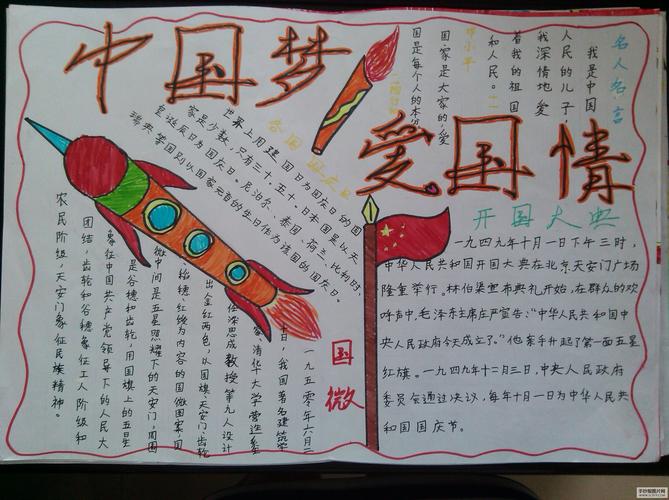 中国梦
爱国情
名人名言
我是中国
人民的儿子,
我深情地爱
着我的祖国
和人民。——
邓小平
国家是大家的,爱
国是每个人的本分
各国国庆日
世界上用建国日为国庆日的国
家是少数,只有三十。五十。日本国是以天
皇诞辰日为国庆日。尼泊尔、泰国、荷兰、比利时、
瑞典等国则以国家元首的生日作为该国的国庆日。
开国大典
一九四九年十月一日下午三时,
中华人民共和国开国大典在北京天安门广场
隆重举行。林伯渠宣布典礼开始,在群众的欢
呼声中,毛泽东主席庄严宣告:“中华人民共和国中
央人民政府今天成立了。”他亲手升起了第一面五星
红旗。一九四九年十二月三日,中央人民政府
委员会通过决议,每年十月一日为中华人民共
和国国庆节。
国徽
一九五〇年六月二
十日,我国著名建筑学
家、清华大学营造系
任梁思成教授第九人设计
出金红两色,以国旗、天安门、齿轮
、稻穗红绶为内容的国徽图案,国
徽中间是五星照耀下的天安门,周围
是谷穗和齿轮,用国旗上的五星
象征中国共产党领导下的人民大
团结,齿轮和谷穗象征工人阶级和
农民阶级,天安门象征民族精神。